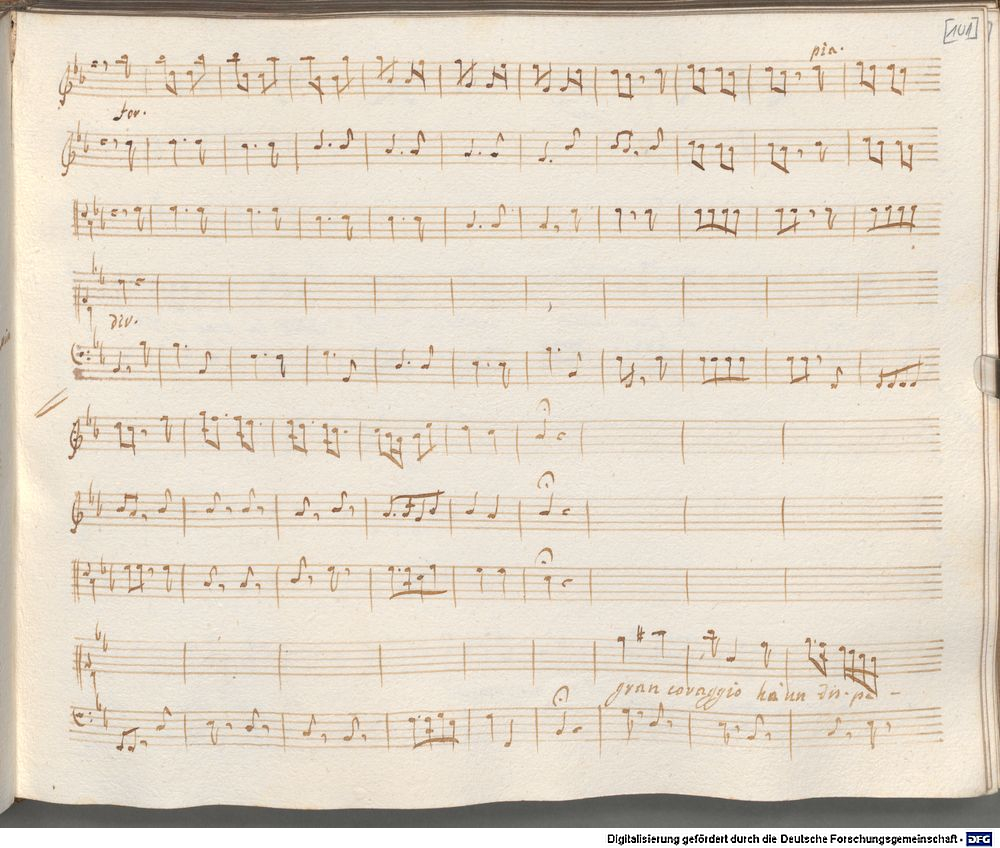 [101]
pia.
for.
div.
gran coraggio hà un dis-pe-
Digitalisierung gefördert durch die Deutsche Forschungsgemeinschaft - DFG